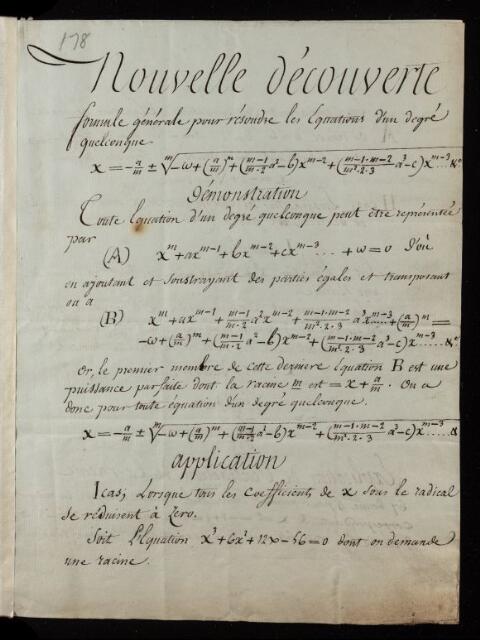 178
Nouvelle découverte
formule générale pour résoudre les Equations d'un degré
quelconque
x = -a/m ± m√-ω+(a/m)^m+(m-1/m·2 a²-b)x^m-2+(m-1·m-2/m²·2·3 a³-c)x^m-3...&c
Démonstration
Toute Equation d'un degré quelconque peut être représentée
par (A) x^m+ax^m-1+bx^m-2+cx^m-3 ... +ω=0 d'où
en ajoutant et soustrayant des parties égales et transposant
on a
(B) x^m+ax^m-1+m-1/m·2 a²x^m-2+m-1·m-2/m²·2·3 a³x^m-3....+(a/m)^m=
-ω+(a/m)^m+(m-1/m·2 a²-b)x^m-2+(m-1·m-2/m²·2·3 a³-c)x^m-3.....&c
Or, le premier membre de cette dernière Equation B est une
puissance parfaite dont la racine m est = x+a/m. On a
donc pour toute équation d'un degré quelconque.
x = -a/m ± m√-ω+(a/m)^m+(m-1/m·2 a²-b)x^m-2+(m-1·m-2/m²·2·3 a³-c)x^m-3.....&
application
1 cas, Lorsque tous les Coefficients de x sous le radical
se réduisent à Zero.
Soit l'Equation x³+6x²+12x-56=0 dont on demande
une racine.